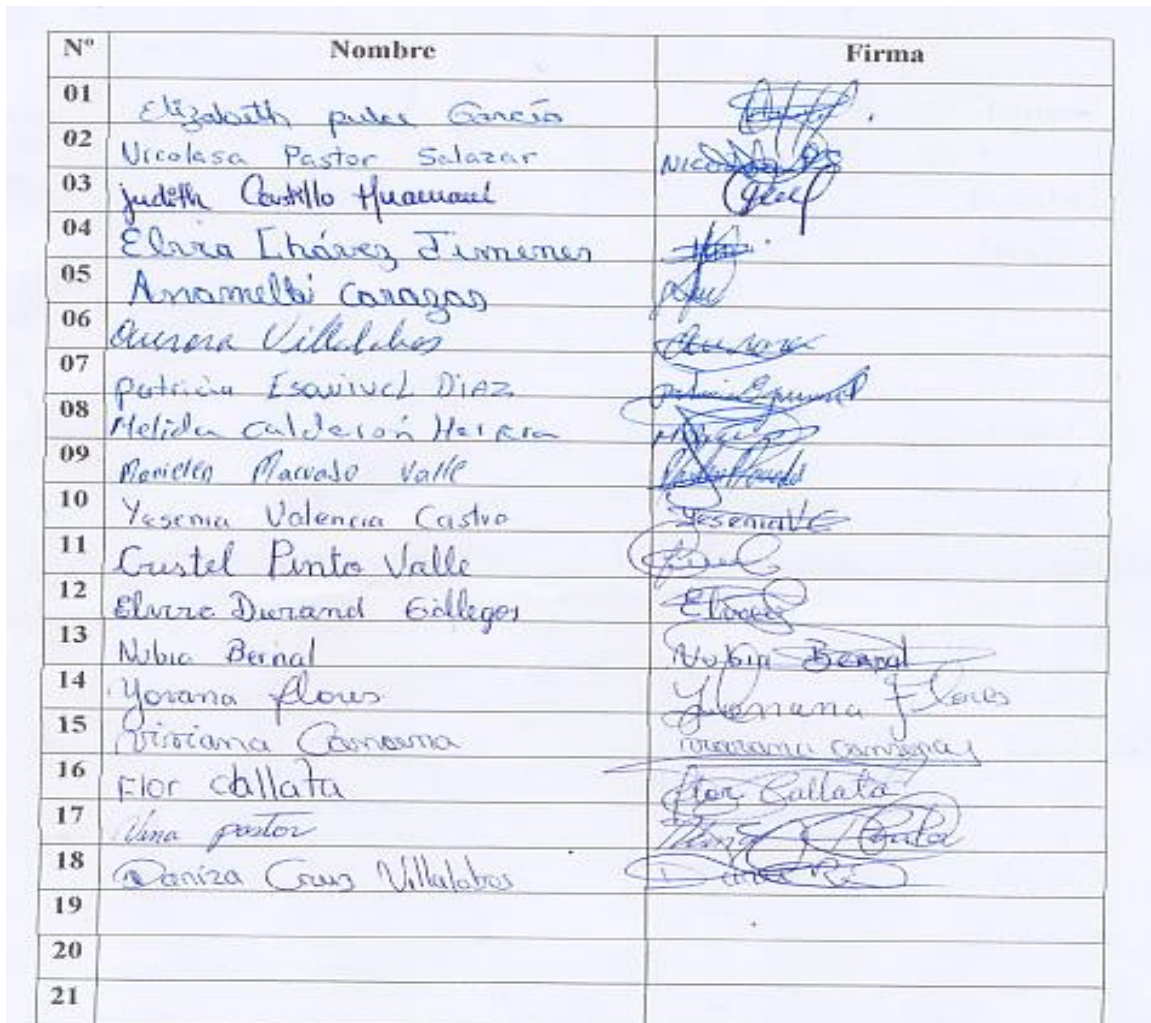 Nº Nombre Firma
01 Elizabeth García
02 Nicolasa Pastor Salazar
03 Judith Castillo Huamaní
04 Elvira Chávez Jimenes
05 Anamelbi Carazas
06 Aurora Villalobos Aurora
07 Patricia Esquivel DIAZ
08 Melida Calderón Herrera
09 Valle
10 Yesenia Valencia Castro Yesenia VC
11 Cristel Pinto Valle
12 Elvira Durand Gallegos
13 Nubia Bernal Nubia Bernal
14 Yovana flores Flores
15 Viviana Camarna
16 Flor Callata Flor Callata
17 pastor
18 Daniza Cruz Villalobos
19
20
21